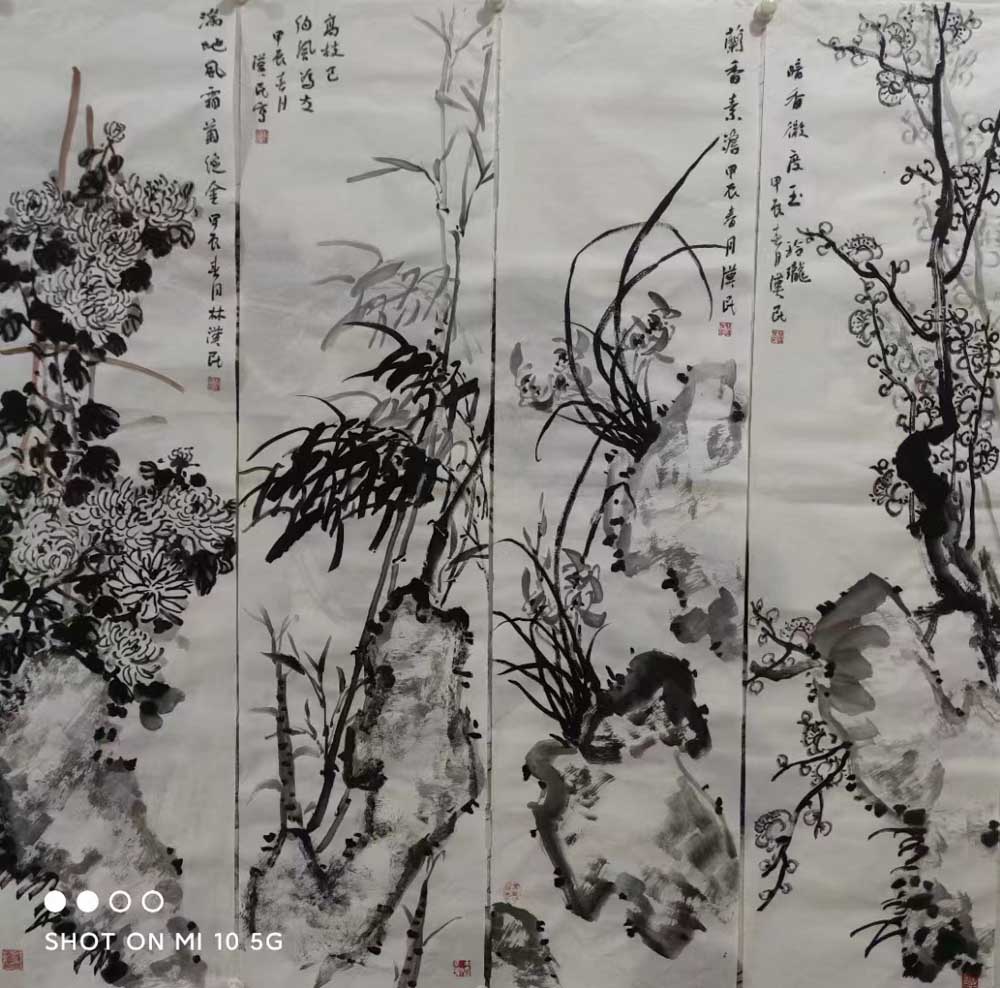 滿地风霜菊绽金甲辰春月林漢民
高枝已
约風為友
甲辰春月
漢民寫
蘭香素澹甲辰春月漢民
暗香微度玉玲瓏
甲辰春月漢民
SHOT ON MI 10 5G